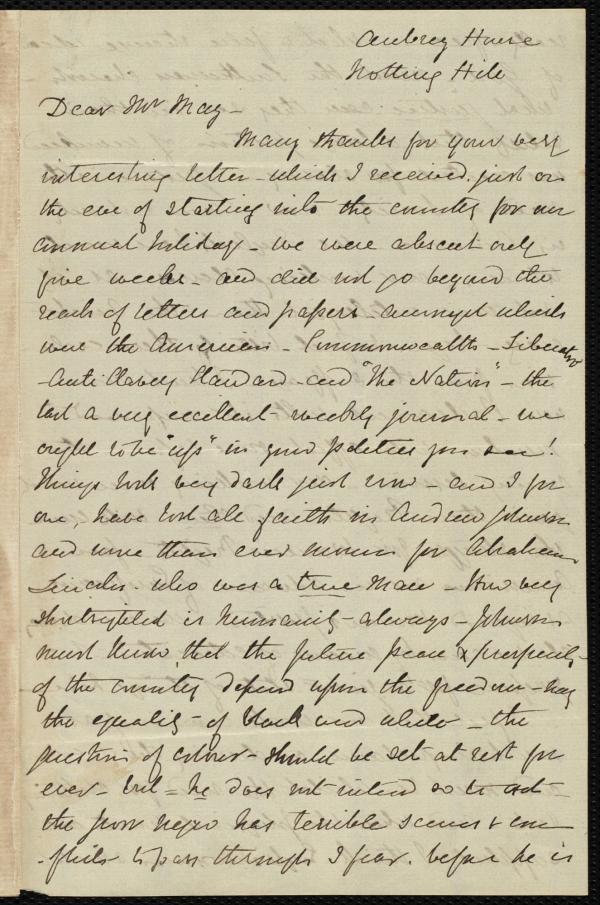 Aubrey House
Notting Hill
Dear Mr May -
Many thanks for your very
interesting letter - which I received just on
the eve of starting into the country for our
annual holiday - we were absent only
five weeks - and did not go beyond the
reach of letters and papers - amongst which
were the American - Commonwealth - Liberator
- Anti Slavery Standard - and "The Nation" - the
last a very excellent weekly journal - we
ought to be "up" in your politics you see!
Things look very dark just now - and I for
one, have lost all faith in Andrew Johnson
and more than ever mourn for Abraham
Lincoln - who was a true man - How very
shortsighted is humanity - always - Johnson
must know that the future peace & prosperity -
of the country depend upon the freedom - nay
the equality - of black and white - the
question of colour - should be set at rest for
ever - but - he does not intend so to act -
the poor negro has terrible scenes & con
-flicts to pass through I fear. before he is